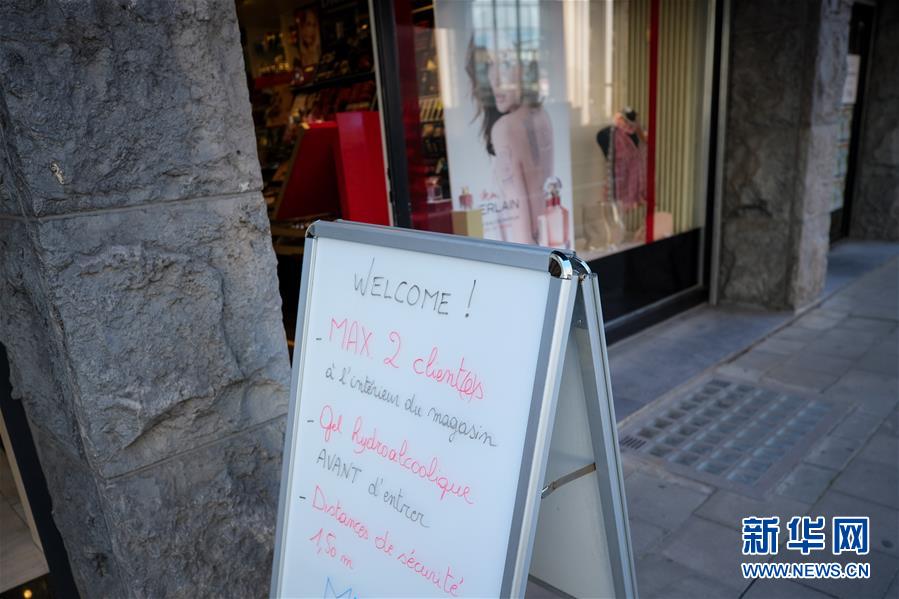 WELCOME !
- MAX. 2 client(e)s
à l'intérieur du magasin
- Gel hydroalcoolique
AVANT d'entrer
- Distances de sécurité
1,50 m
ERLAIN
新华网
WWW.NEWS.CN